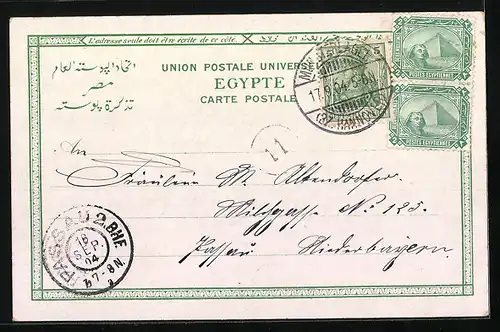 L'adresse seule doit être écrite de ce côté.
اتحاد البوسته العام
مصر
تذكرة بوسته
UNION POSTALE UNIVERSELLE
EGYPTE
CARTE POSTALE
POSTES EGYPTIENNES
POSTES EGYPTIENNES
17.9.04
11
An
Fräulein M. Altendorfer
Milchgasse No 125.
Passau Niederbayern.
PASSAU 2 BHF.
18
SEP.
04
7-8N.